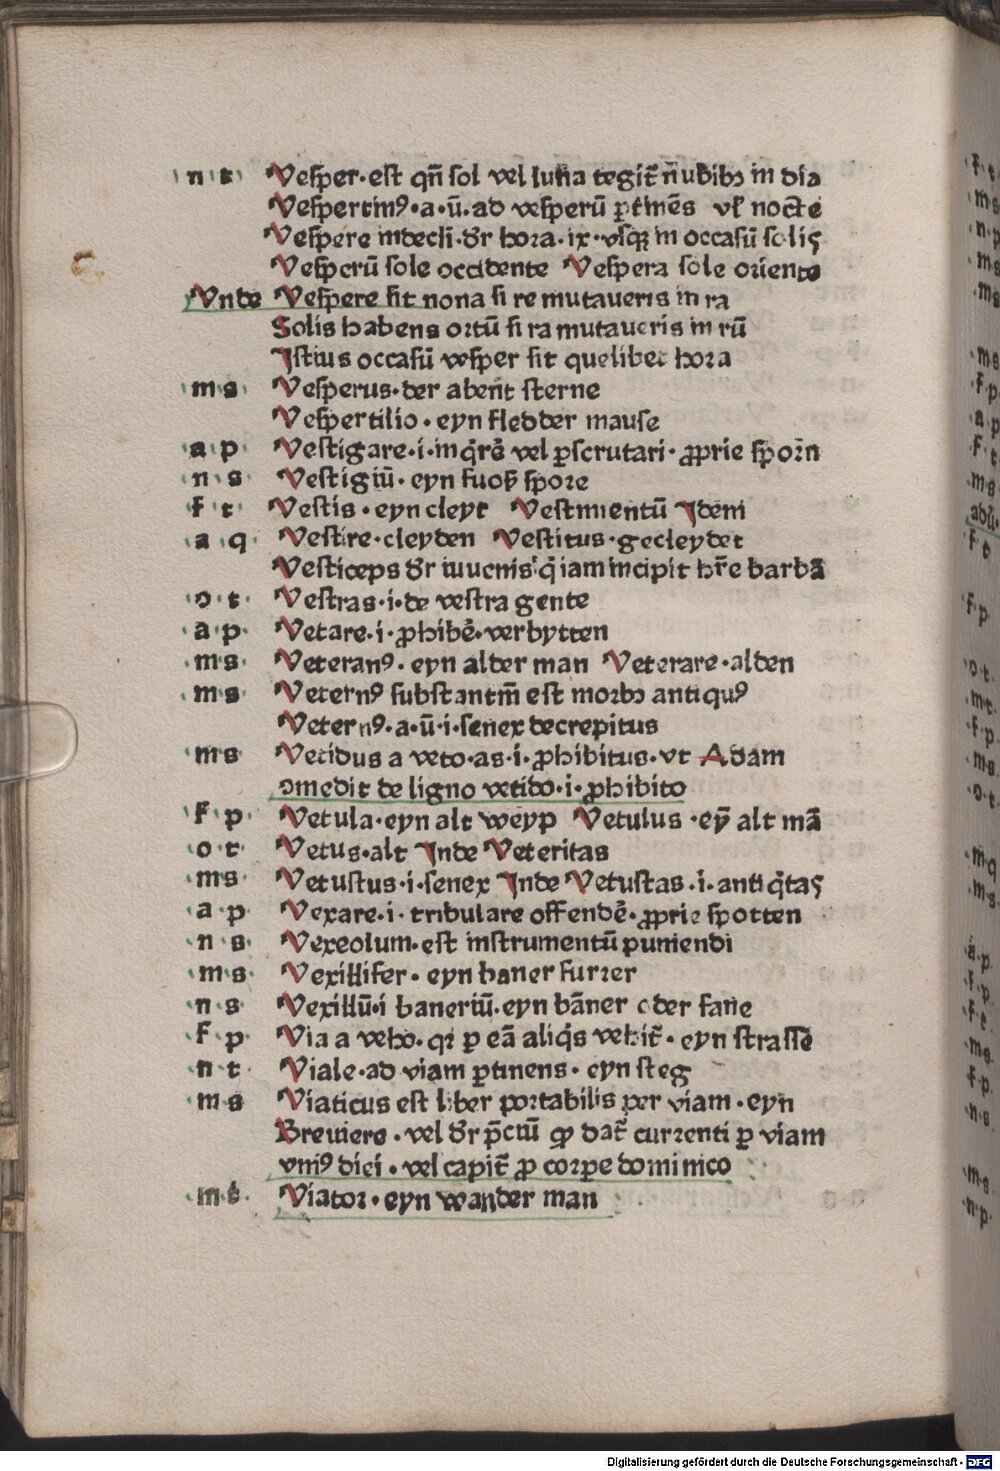 n t Vesper·est qn̄ sol vel luna tegit᷑ nubibꝫ in die
Vespertinꝰ·a·ū·ad vesperū ꝑtinēs vl̓ nocte
Vespere indecli·dr̄ hora·ix·vsqꝫ in occasū solis
Vesperū sole occidente Vespera sole oriente
Vnde Vespere fit nona si re mutaueris in ra
Solis habens ortū si ra mutaueris in rū
Istius occasū vesper fit quelibet hora
m s Vesperus·der abent sterne
Vespertilio·eyn fledder mause
a p Vestigare·i·inq̄rē vel ꝑscrutari·ꝓprie sporn
n s Vestigiū·eyn fuoß spore
f t Vestis·eyn cleyt Vestimentū Idem
a q Vestire·cleyden Vestitus·gecleydet
Vesticeps dr̄ iuuenis q̄ iam incipit hr̄e barbā
o t Vestras·i·de vestra gente
a p Vetare·i·ꝓhibē·verbytten
m s Veteranꝰ·eyn alder man Veterare·alden
m s Veternꝰ substantīn est morbꝫ antiquꝰ
Veternꝰ·a·ū·i·senex decrepitus
m s Vetidus a veto·as·i·ꝓhibitus·vt Adam
ↄmedit de ligno vetido·i·ꝓhibito
f p Vetula·eyn alt weyp Vetulus·eȳ alt mā
o t Vetus·alt Inde Veteritas
m s Vetustus·i·senex Inde Vetustas·i·antiq̄tas
a p Vexare·i·tribulare offendē·ꝓprie spotten
n s Vexeolum·est instrumentū puniendi
m s Vexillifer·eyn baner furrer
n s Vexillū·i baneriū·eyn bāner oder fane
f p Via a veho·qꝛ ꝑ eā aliq̄s vehit᷑·eyn strassē
n t Viale·ad viam ꝑtinens·eyn steg
m s Viaticus est liber portabilis per viam·eyn
Breuiere·vel dr̄ p̄ciū ꝙ dat᷑ currenti ꝑ viam
vniꝰ diei·vel capit᷑ ꝓ corpe dominico
m t Viator·eyn wander man
Digitalisierung gefördert durch die Deutsche Forschungsgemeinschaft - DFG